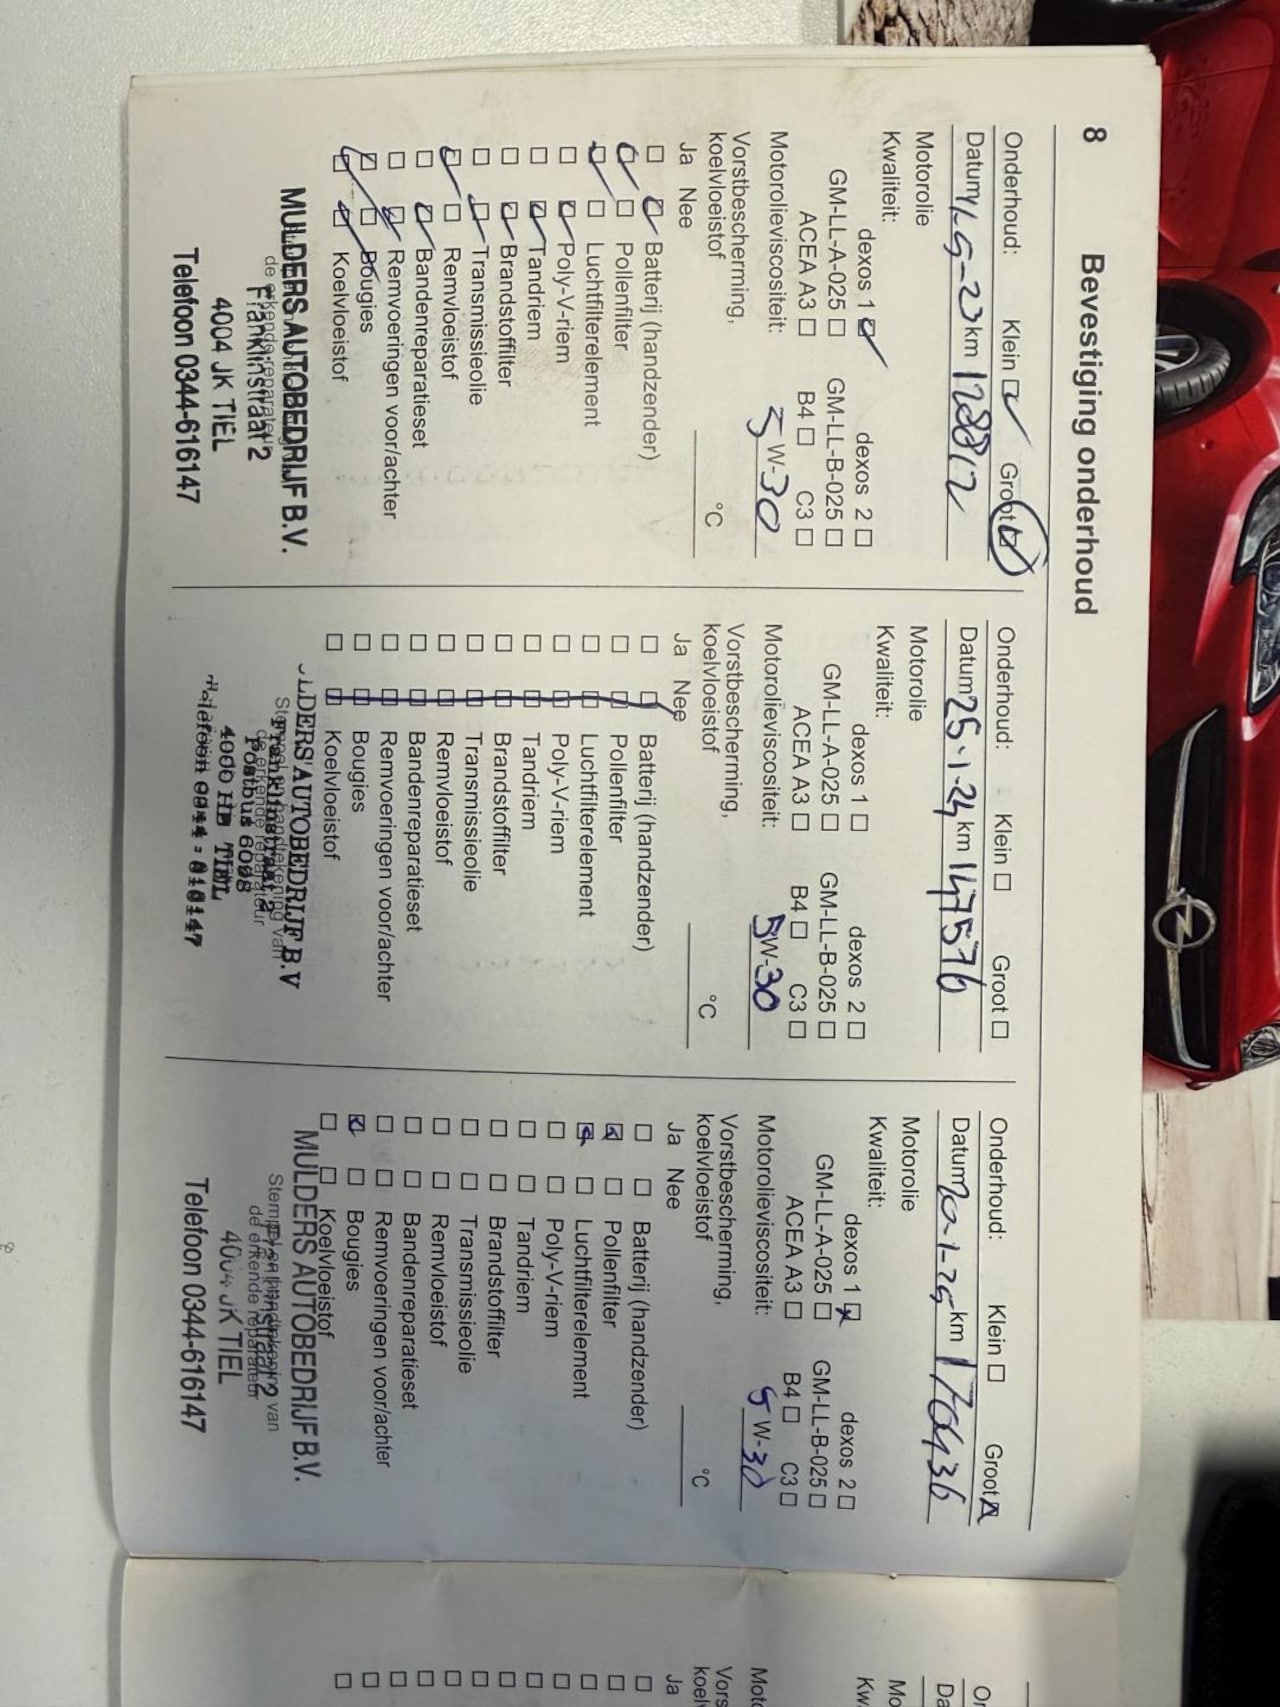 8 Bevestiging onderhoud
Onderhoud: Klein Groot
Datum km 128812
Motorolie
Kwaliteit:
dexos 1 dexos 2
GM-LL-A-025 GM-LL-B-025
ACEA A3 B4 C3
Motorolieviscositeit: 5W-30
Vorstbescherming,
koelvloeistof °C
Ja Nee
Batterij (handzender)
Pollenfilter
Luchtfilterelement
Poly-V-riem
Tandriem
Brandstoffilter
Transmissieolie
Remvloeistof
Bandenreparatieset
Remvoeringen voor/achter
Bougies
Koelvloeistof
MULDERS AUTOBEDRIJF B.V.
de erkende reparateur
Franklinstraat 2
4004 JK TIEL
Telefoon 0344-616147
Onderhoud: Klein Groot
Datum 25-1-24 km 147576
Motorolie
Kwaliteit:
dexos 1 dexos 2
GM-LL-A-025 GM-LL-B-025
ACEA A3 B4 C3
Motorolieviscositeit: 5W-30
Vorstbescherming,
koelvloeistof °C
Ja Nee
Batterij (handzender)
Pollenfilter
Luchtfilterelement
Poly-V-riem
Tandriem
Brandstoffilter
Transmissieolie
Remvloeistof
Bandenreparatieset
Remvoeringen voor/achter
Bougies
Koelvloeistof
LDERS AUTOBEDRIJF B.V
Stempel en handtekening van
de erkende reparateur
Franklinstraat 2
Postbus 6098
4000 HB TIEL
Telefoon 0344-616147
Onderhoud: Klein Groot
Datum km
Motorolie
Kwaliteit:
dexos 1 dexos 2
GM-LL-A-025 GM-LL-B-025
ACEA A3 B4 C3
Motorolieviscositeit: 5W-30
Vorstbescherming,
koelvloeistof °C
Ja Nee
Batterij (handzender)
Pollenfilter
Luchtfilterelement
Poly-V-riem
Tandriem
Brandstoffilter
Transmissieolie
Remvloeistof
Bandenreparatieset
Remvoeringen voor/achter
Bougies
Koelvloeistof
MULDERS AUTOBEDRIJF B.V.
Stempel en handtekening van
de erkende reparateur
4004 JK TIEL
Telefoon 0344-616147
Ja